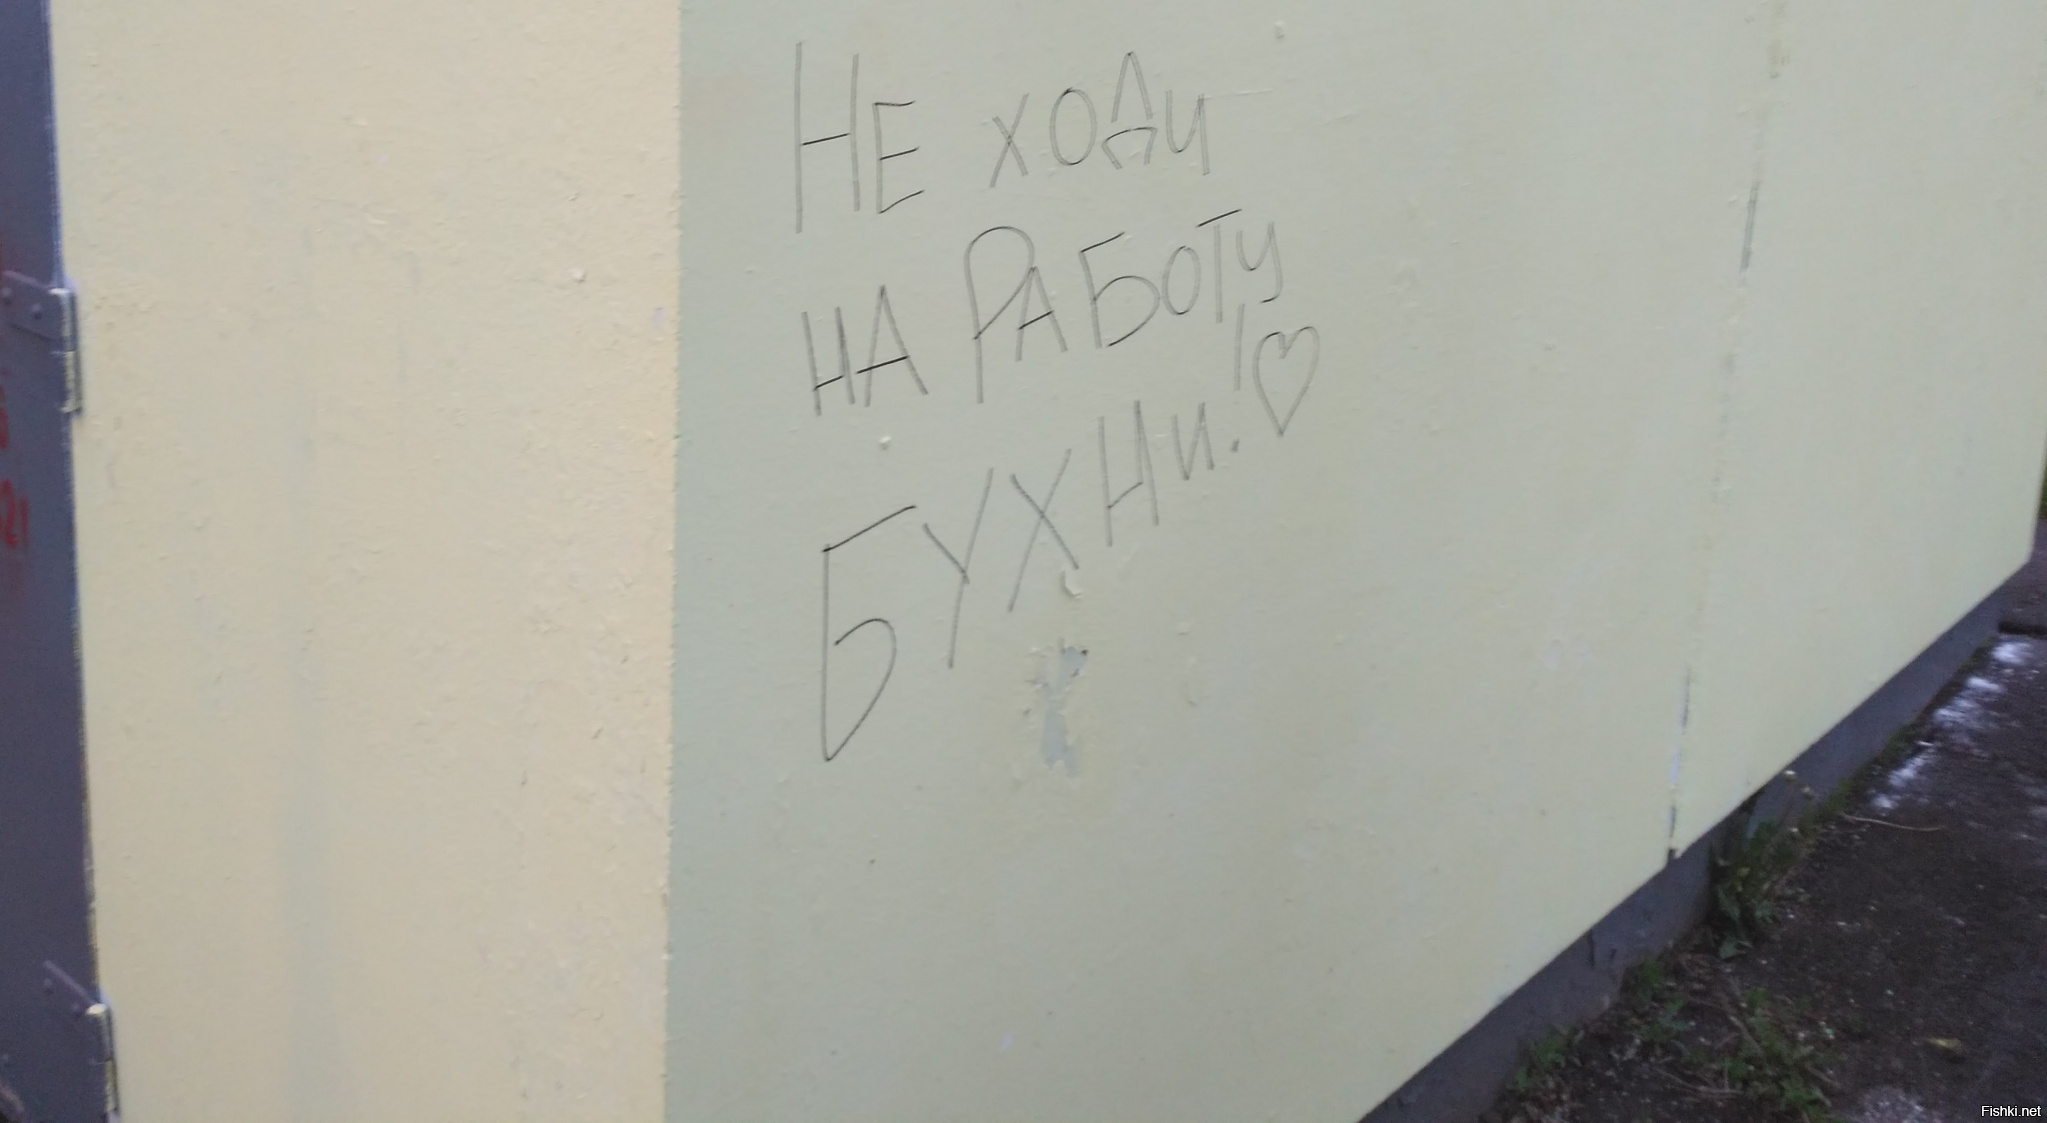 Не ходи
на работу
Бухни!♡
21
Fishki.net